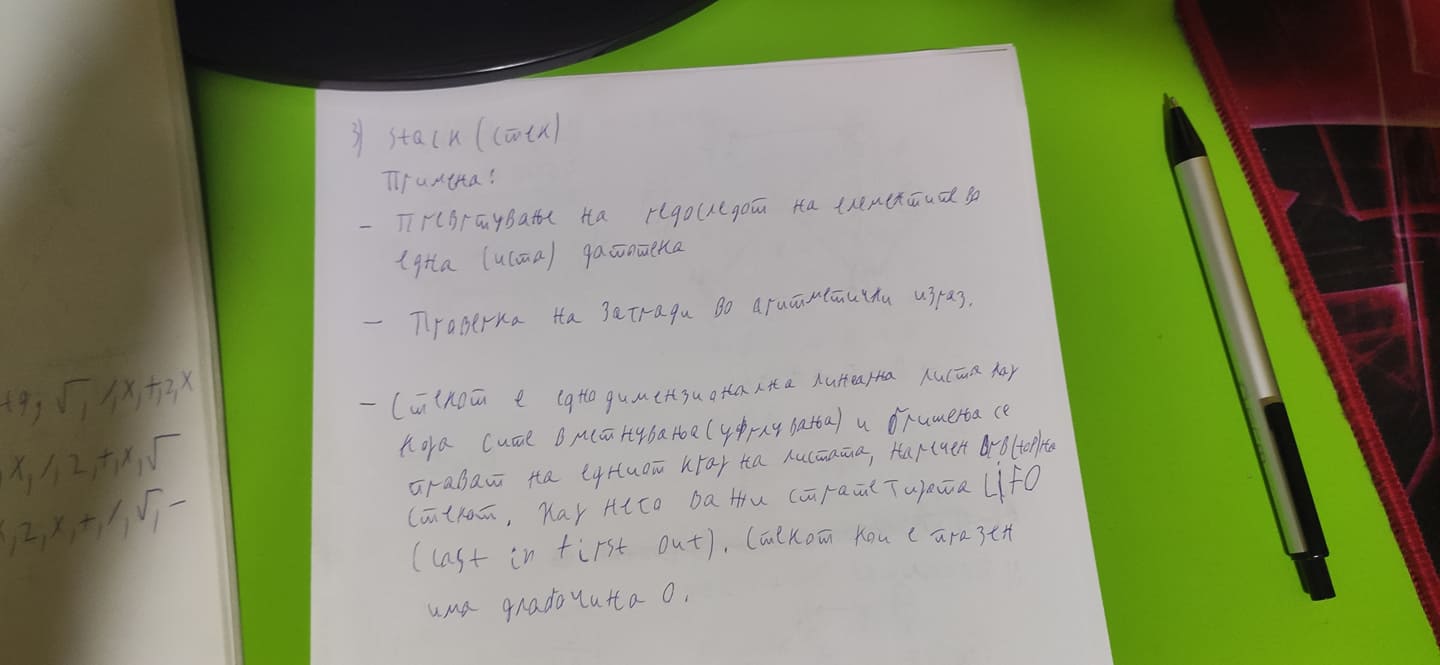 3) Stack (стек)
Примена:
- Превртување на редоследот на елементите во
една (иста) датотека
- Проверка на загради во аритметички израз.
- Стекот е еднодимензионална линеарна листа кај
која сите вметнувања (уфрлувања) и бришења се
прават на едниот крај на листата, наречен врв (top) на
стекот. Кај него важи стратегијата LiFO
(Last in first out). Стекот кои е празен
има длабочина 0.
+9, √, /, x, +, 2, x
x, /, 2, +, x, √
, 2, x, +, /, √, -